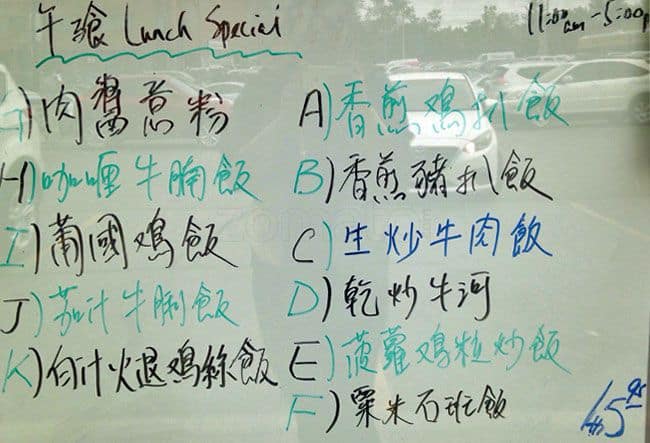 午飱 Lunch Special
11:00am - 5:00p
G) 肉醬意粉
H) 咖喱牛腩飯
I) 葡國鸡飯
J) 茄汁牛脷飯
K) 白汁火退鸡絲飯
A) 香煎鸡扒飯
B) 香煎豬扒飯
C) 生炒牛肉飯
D) 乾炒牛河
E) 菠蘿鸡粒炒飯
F) 粟米石班飯
$5.95